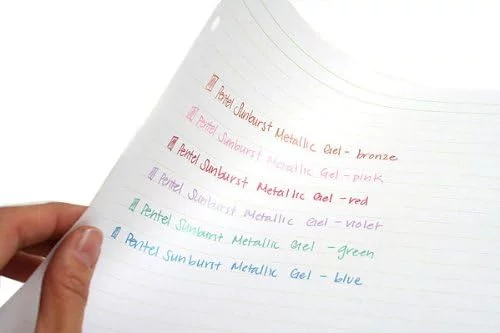 Pentel Sunburst Metallic Gel - bronze
Pentel Sunburst Metallic Gel - pink
Pentel Sunburst Metallic Gel - red
Pentel Sunburst Metallic Gel - violet
Pentel Sunburst Metallic Gel - green
Pentel Sunburst Metallic Gel - blue